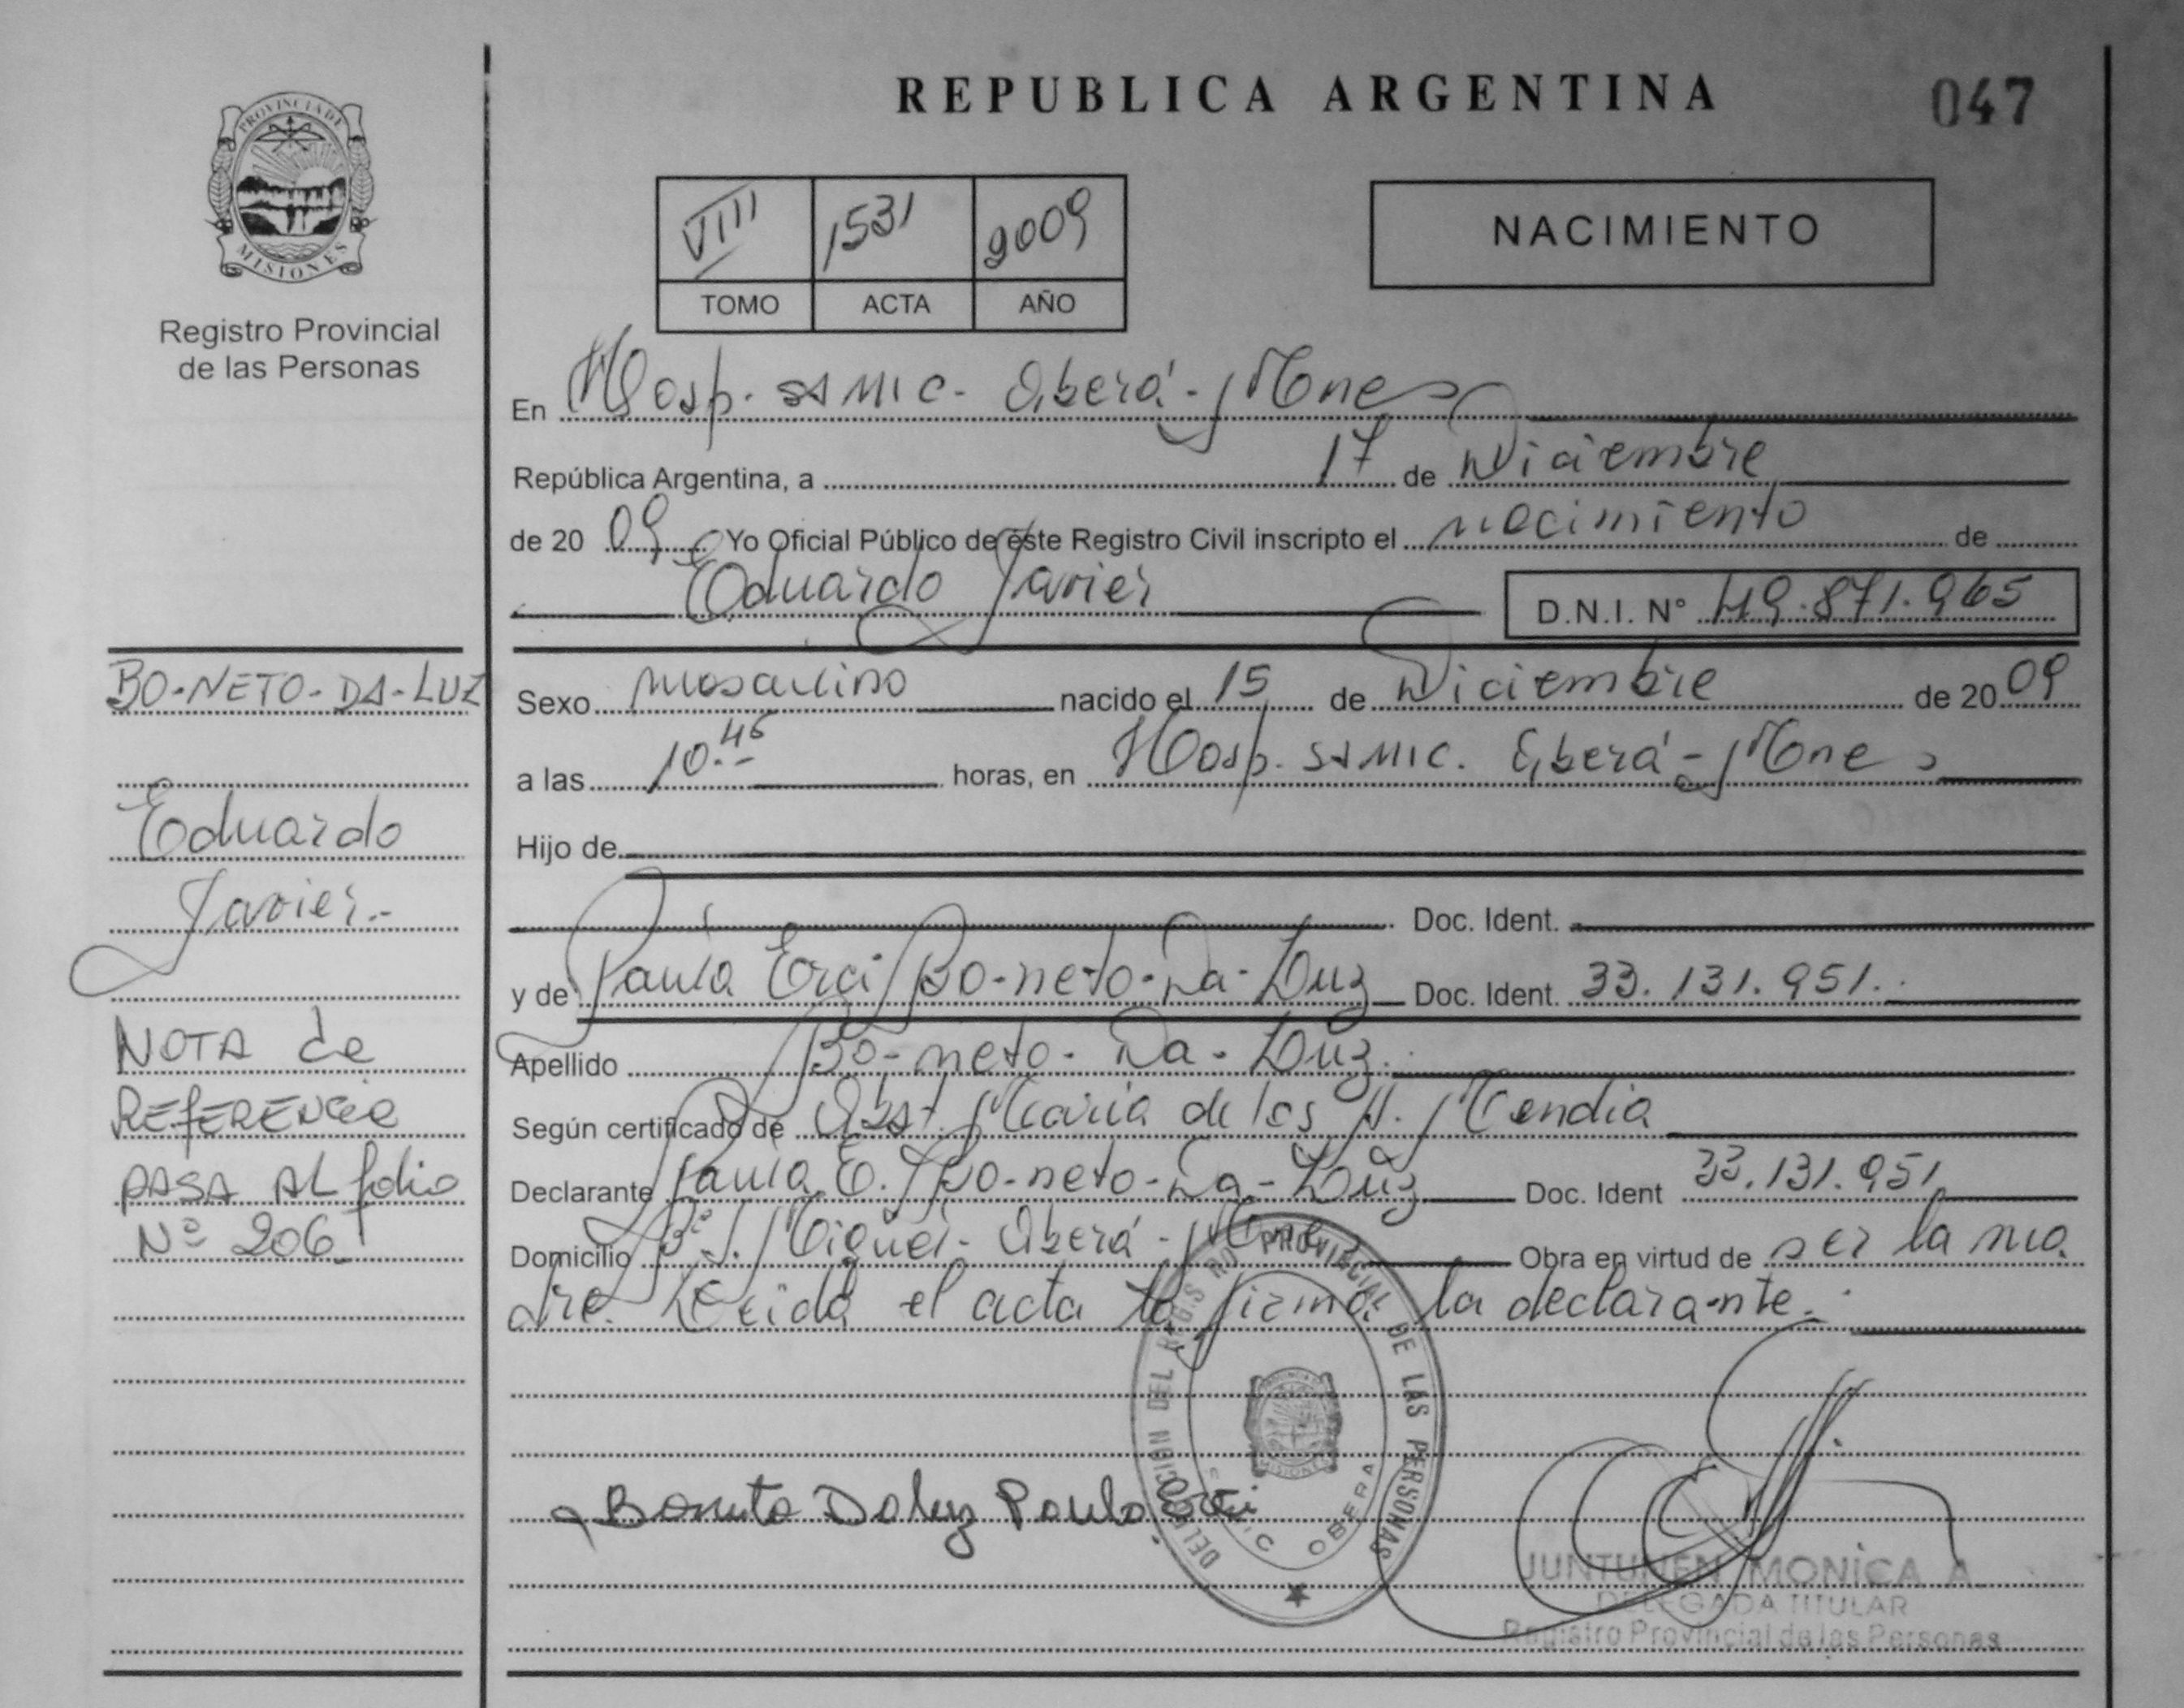 REPUBLICA ARGENTINA
047
PROVINCIA DE
MISIONES
Registro Provincial
de las Personas
VIII 1531 2009
TOMO ACTA AÑO
NACIMIENTO
En Hosp. SAMIC. Oberá - Mnes
República Argentina, a 17 de Diciembre
de 20 09 Yo Oficial Público de este Registro Civil inscripto el nacimiento de
Eduardo Javier D.N.I. N° 49.871.965
BO-NETO-DA-LUZ
Eduardo
Javier.-
NOTA de
REFERENCIA
PASA AL folio
Nº 206
Sexo masculino nacido el 15 de Diciembre de 20 09
a las 10.45 horas, en Hosp. SAMIC. Oberá - Mnes
Hijo de
Doc. Ident.
y de Paula Erci Bo-neto-Da-Luz Doc. Ident. 33.131.951.
Apellido Bo-neto-Da-Luz.
Según certificado de Obst. Maria de los A. Mendia
Declarante Paula E. Bo-neto-Da-Luz Doc. Ident 33.131.951
Domicilio Bº S. Miguel - Oberá - Mnes Obra en virtud de ser la ma
dre. Leida el acta la firma la declarante.
DEL REGISTRO PROVINCIAL DE LAS PERSONAS
MISIONES
OBERA
Boneto Daluz Paula Erci
JUNTUNEN MONICA A.
DELEGADA TITULAR
Registro Provincial de las Personas